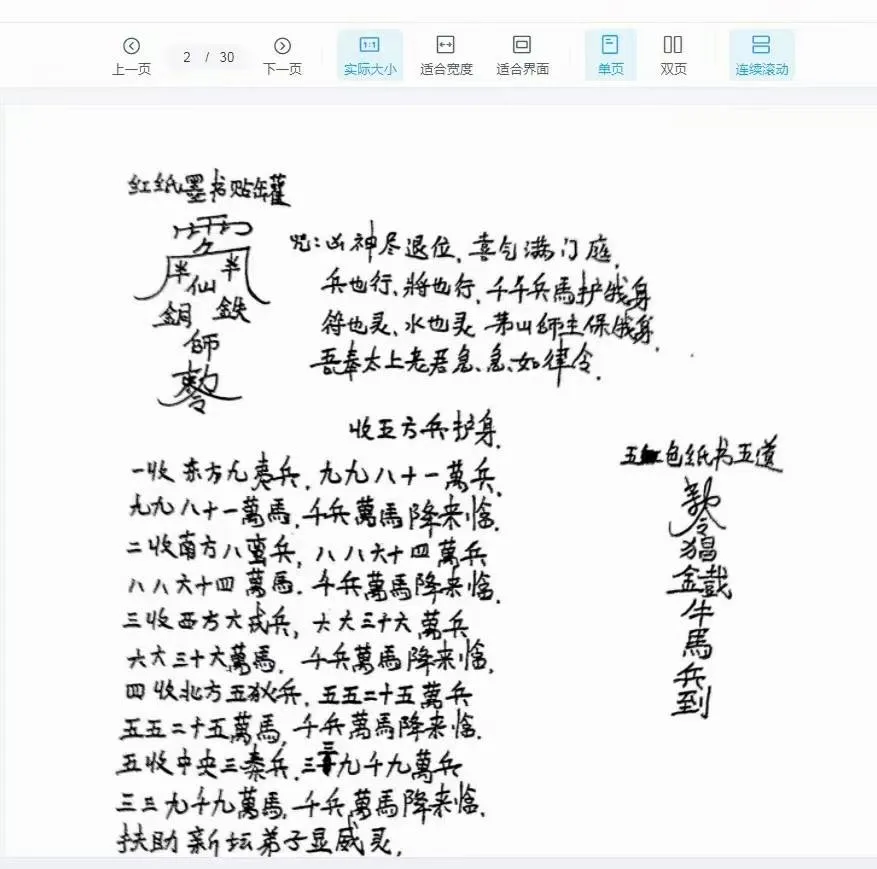 上一页 2 / 30 下一页 实际大小 适合宽度 适合界面 单页 双页 连续滚动
红纸墨书贴罐
半 仙 半
銅 鉄
師
敕令
咒:凶神尽退位,喜气满门庭,
兵也行、將也行,千千兵馬护我身
符也灵、水也灵 茅山師主保我身,
吾奉太上老君急、急、如律令.
收五方兵护身.
一收东方九夷兵,九九八十一萬兵,
九九八十一萬馬,千兵萬馬降来临.
二收南方八蛮兵,八八六十四萬兵
八八六十四萬馬.千兵萬馬降来临.
三收西方六戎兵,六六三十六萬兵
六六三十六萬馬.千兵萬馬降来临,
四收北方五狄兵,五五二十五萬兵
五五二十五萬馬,千兵萬馬降来临.
五收中央三秦兵.三三九千九萬兵
三三九千九萬馬,千兵萬馬降来临.
扶助新坛弟子显威灵,
五红色纸书五道
敕令
猖
金戟
牛
馬
兵
到